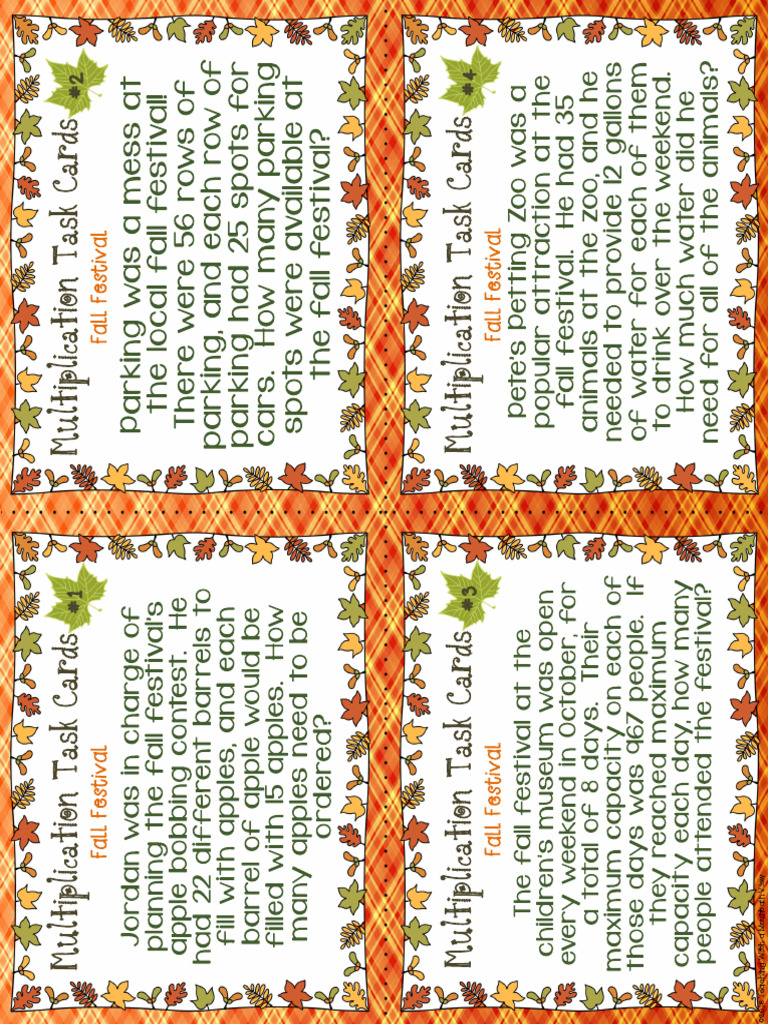 Multiplication Task Cards #1
Fall Festival
Jordan was in charge of
planning the fall festival's
apple bobbing contest. He
had 22 different barrels to
fill with apples, and each
barrel of apple would be
filled with 15 apples. How
many apples need to be
ordered?
Multiplication Task Cards #2
Fall Festival
Parking was a mess at
the local fall festival!
There were 56 rows of
parking, and each row of
parking had 25 spots for
cars. How many parking
spots were available at
the fall festival?
Multiplication Task Cards #3
Fall Festival
The fall festival at the
children's museum was open
every weekend in October, for
a total of 8 days. Their
maximum capacity on each of
those days was 967 people. If
they reached maximum
capacity each day, how many
people attended the festival?
Multiplication Task Cards #4
Fall Festival
Pete's Petting Zoo was a
popular attraction at the
fall festival. He had 35
animals at the zoo, and he
needed to provide 12 gallons
of water for each of them
to drink over the weekend.
How much water did he
need for all of the animals?
with a Mountain View